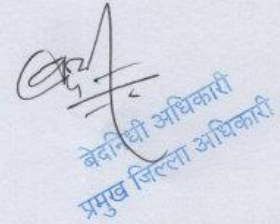 बेदनिधी अधिकारी
प्रमुख जिल्ला अधिकारी